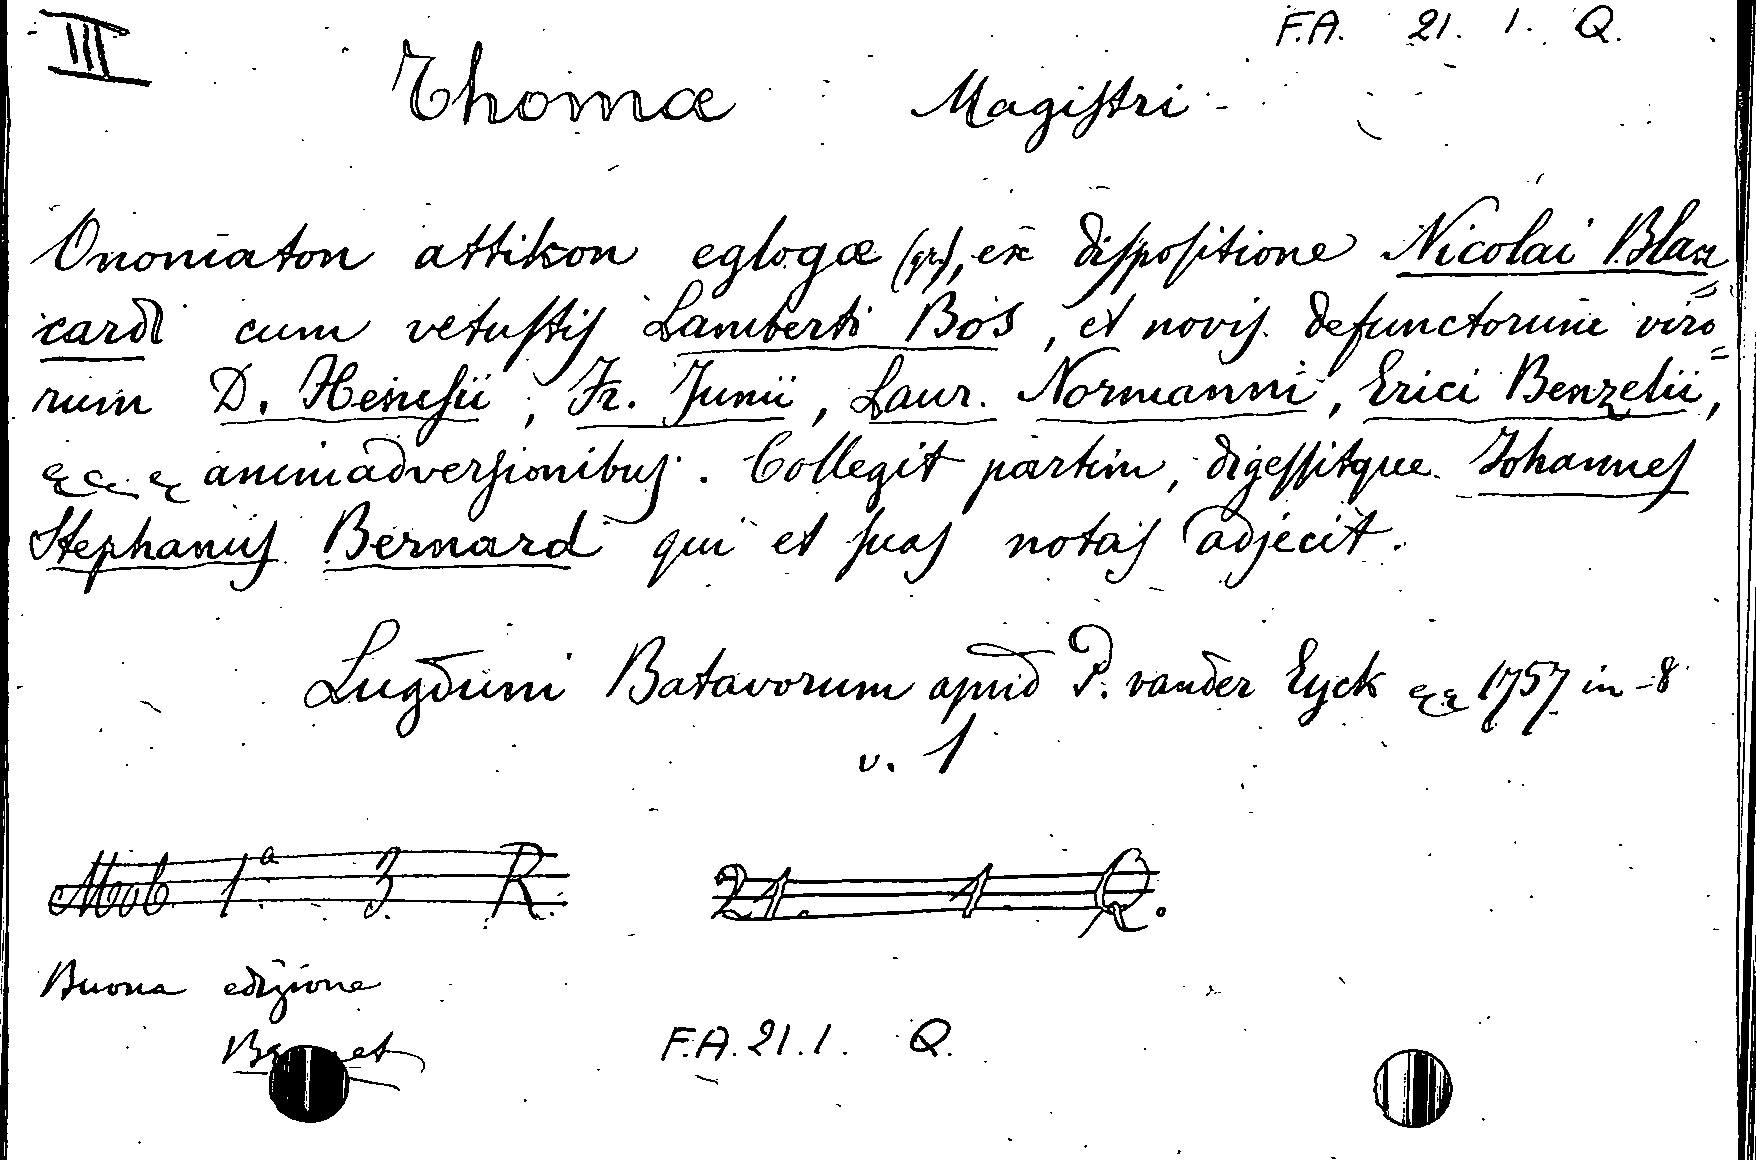 III
F.A. 21. 1. Q.
Thomæ Magistri
Onomaton attikon eglogæ (gr.), ex dispositione Nicolai Blan=
cardi cum vetustis Lamberti Bos, et novis defunctorum viro=
rum D. Heinsii, Fr. Junii, Laur. Normanni, Erici Benzelii,
animadversionibus. Collegit partim, digessitque Johannes
Stephanus Bernard qui et suas notas adjecit.
Lugduni Batavorum apud P. vander Eyck 1757 in-8
v. 1
Mob 1ª 3 R. 21. 1 Q.
Buona edizione
F.A. 21. 1. Q.